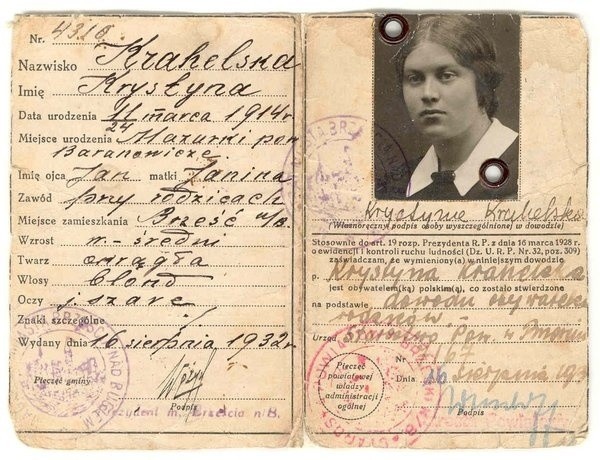 Nr. 4310.
Nazwisko Krahelska
Imię Krystyna
Data urodzenia 11 marca 1914 r
24
Miejsce urodzenia Mazurki pow
Baranowicze
Imię ojca Jan matki Janina
Zawód przy rodzicach
Miejsce zamieszkania Brześć n/B.
Wzrost w.-średni
Twarz okrągła
Włosy blond
Oczy j. szare
Znaki szczególne
Wydany dnia 16 sierpnia 1932 r
Pieczęć gminy
Podpis
Prezydent m. Brześcia n/B.
Krystyna Krahelska
(Własnoręczny podpis osoby wyszczególnionej w dowodzie)
Stosownie do art. 19 rozp. Prezydenta R. P. z dnia 16 marca 1928 r.
o ewidencji i kontroli ruchu ludności (Dz. U. R. P. Nr. 32, poz. 309)
zaświadczam, że wymieniony(a) w niniejszym dowodzie
p. Krystyna Krahelska
jest obywatelem(ką) polskim(ą), co zostało stwierdzone
na podstawie dowodu
rodziców
Urząd Starostwo Pow. w
Nr. 67
Dnia 16 sierpnia 193
Pieczęć
powiatowej
władzy
administracji
ogólnej
Podpis